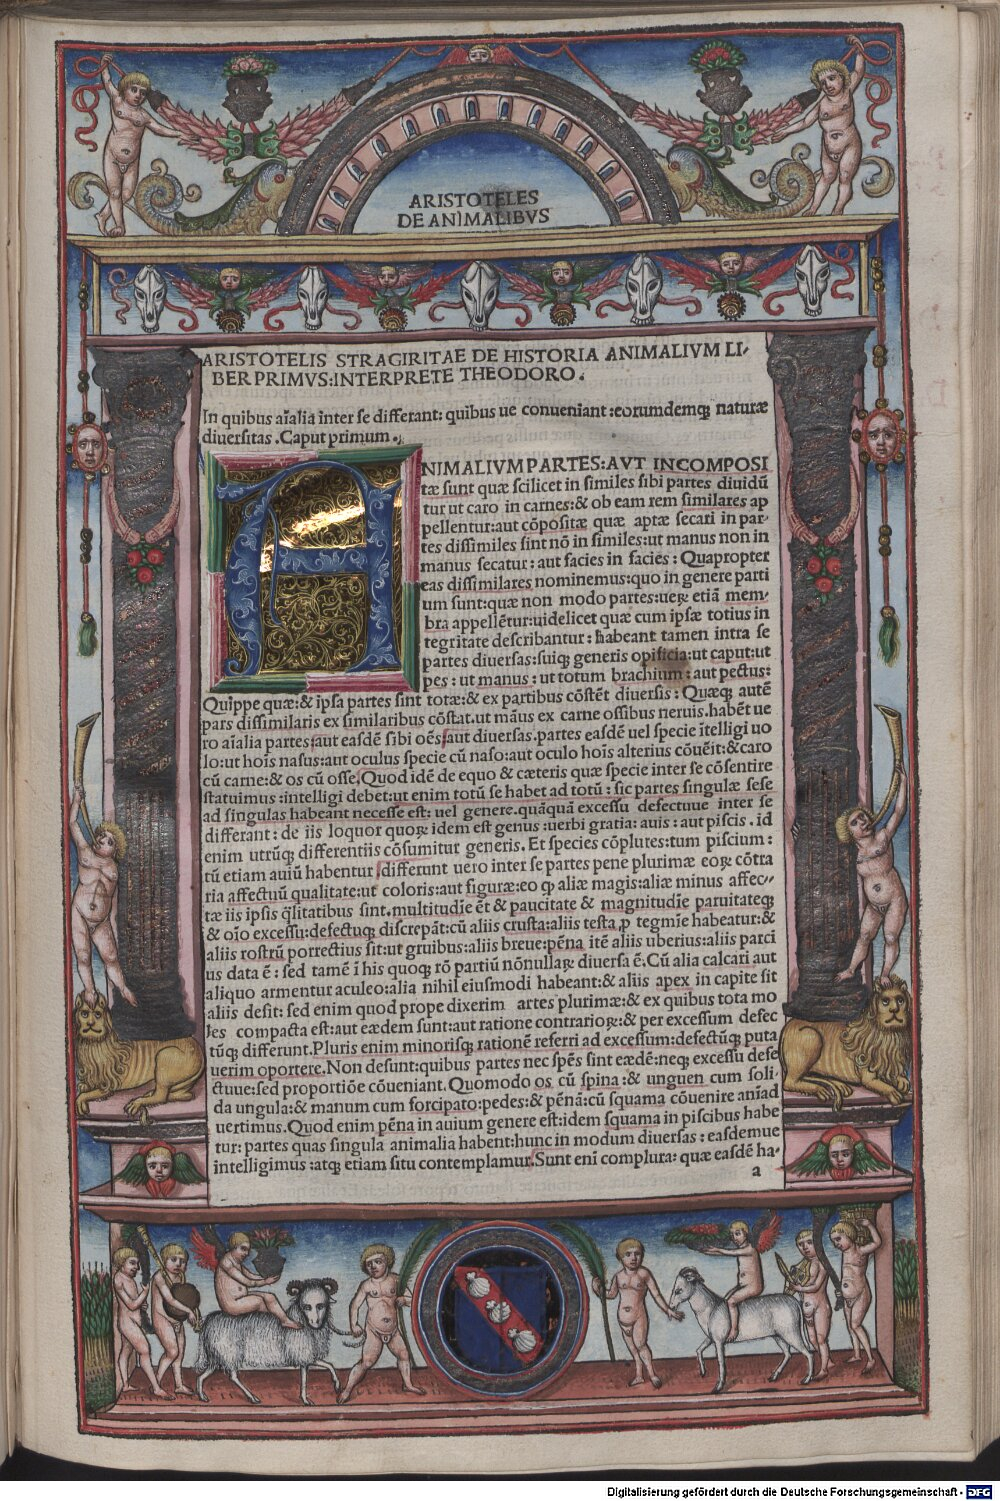 ARISTOTELES
DE ANIMALIBVS
ARISTOTELIS STRAGIRITAE DE HISTORIA ANIMALIVM LI-
BER PRIMVS:INTERPRETE THEODORO.
In quibus aĩalia inter se differant: quibus ue conueniant :eorumdemqꝫ naturæ
diuersitas .Caput primum .
ANIMALIVM PARTES:AVT INCOMPOSI
tæ sunt quæ scilicet in similes sibi partes diuidũ
tur ut caro in carnes:& ob eam rem similares ap
pellentur:aut cõpositæ quæ aptæ secari in par-
tes dissimiles sint nõ in similes:ut manus non in
manus secatur: aut facies in facies : Quapropter
eas dissimilares nominemus:quo in genere parti
um sunt:quæ non modo partes:ueꝝ etiã mem-
bra appellẽtur:uidelicet quæ cum ipsæ totius in
tegritate describantur: habeant tamen intra se
partes diuersas:suiqꝫ generis opificia:ut caput:ut
pes: ut manus: ut totum brachium: aut pectus:
Quippe quæ:& ipsa partes sint totæ:& ex partibus cõstẽt diuersis: Quæqꝫ autẽ
pars dissimilaris ex similaribus cõstat.ut mãus ex carne ossibus neruis.habẽt ue
ro aĩalia partes:aut easdẽ sibi oẽs:aut diuersas.partes easdẽ uel specie ĩtelligi uo
lo:ut hoĩs nasus:aut oculus specie cũ naso:aut oculo hoĩs alterius cõuẽit:& caro
cũ carne:& os cũ osse.Quod idẽ de equo & cæteris quæ specie inter se cõsentire
statuimus :intelligi debet:ut enim totũ se habet ad totũ: sic partes singulæ sese
ad singulas habeant necesse est: uel genere.quãquã excessu defectuue inter se
differant: de iis loquor quoꝝ idem est genus :uerbi gratia: auis: aut piscis. id
enim utrũqꝫ differentiis cõsumitur generis. Et species cõplures:tum piscium:
tũ etiam auiũ habentur :differunt uero inter se partes pene plurimæ eoꝝ cõtra
ria affectuũ qualitate:ut coloris:aut figuræ:eo ꝙ aliæ magis:aliæ minus affec-
tæ iis ipsis q̃litatibus sint.multitudĩe ẽt & paucitate & magnitudĩe paruitateqꝫ
& oĩo excessu:defectuqꝫ discrepãt:cũ aliis crusta:aliis testa ꝓ tegmĩe habeatur:&
aliis rostrũ porrectius sit:ut gruibus:aliis breue:pẽna itẽ aliis uberius:aliis parci
us data ẽ: sed tamẽ ĩ his quoqꝫ rõ partiũ nõnullaꝝ diuersa ẽ.Cũ alia calcari aut
aliquo armentur aculeo:alia nihil eiusmodi habeant:& aliis apex in capite sit
aliis desit: sed enim quod prope dixerim artes plurimæ:& ex quibus tota mo
les compacta est:aut eædem sunt:aut ratione contrarioꝝ:& per excessum defec
tũqꝫ differunt.Pluris enim minorisqꝫ rationẽ referri ad excessum:defectũqꝫ puta
uerim oportere.Non desunt:quibus partes nec spẽs sint eædẽ:neqꝫ excessu defe
ctuue:sed proportiõe cõueniant.Quomodo os cũ spina:& unguen cum soli-
da ungula:& manum cum forcipato:pedes:& pẽnã:cũ squama cõuenire anĩad
uertimus.Quod enim pẽna in auium genere est:idem squama in piscibus habe
tur: partes quas singula animalia habent:hunc in modum diuersas: easdemue
intelligimus :atqꝫ etiam situ contemplamur.Sunt enĩ complura: quæ easdẽ ha-
a
Digitalisierung gefördert durch die Deutsche Forschungsgemeinschaft - DFG